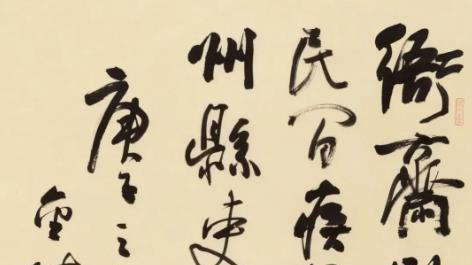 衙齋
民间疾
州縣吏
庚子之